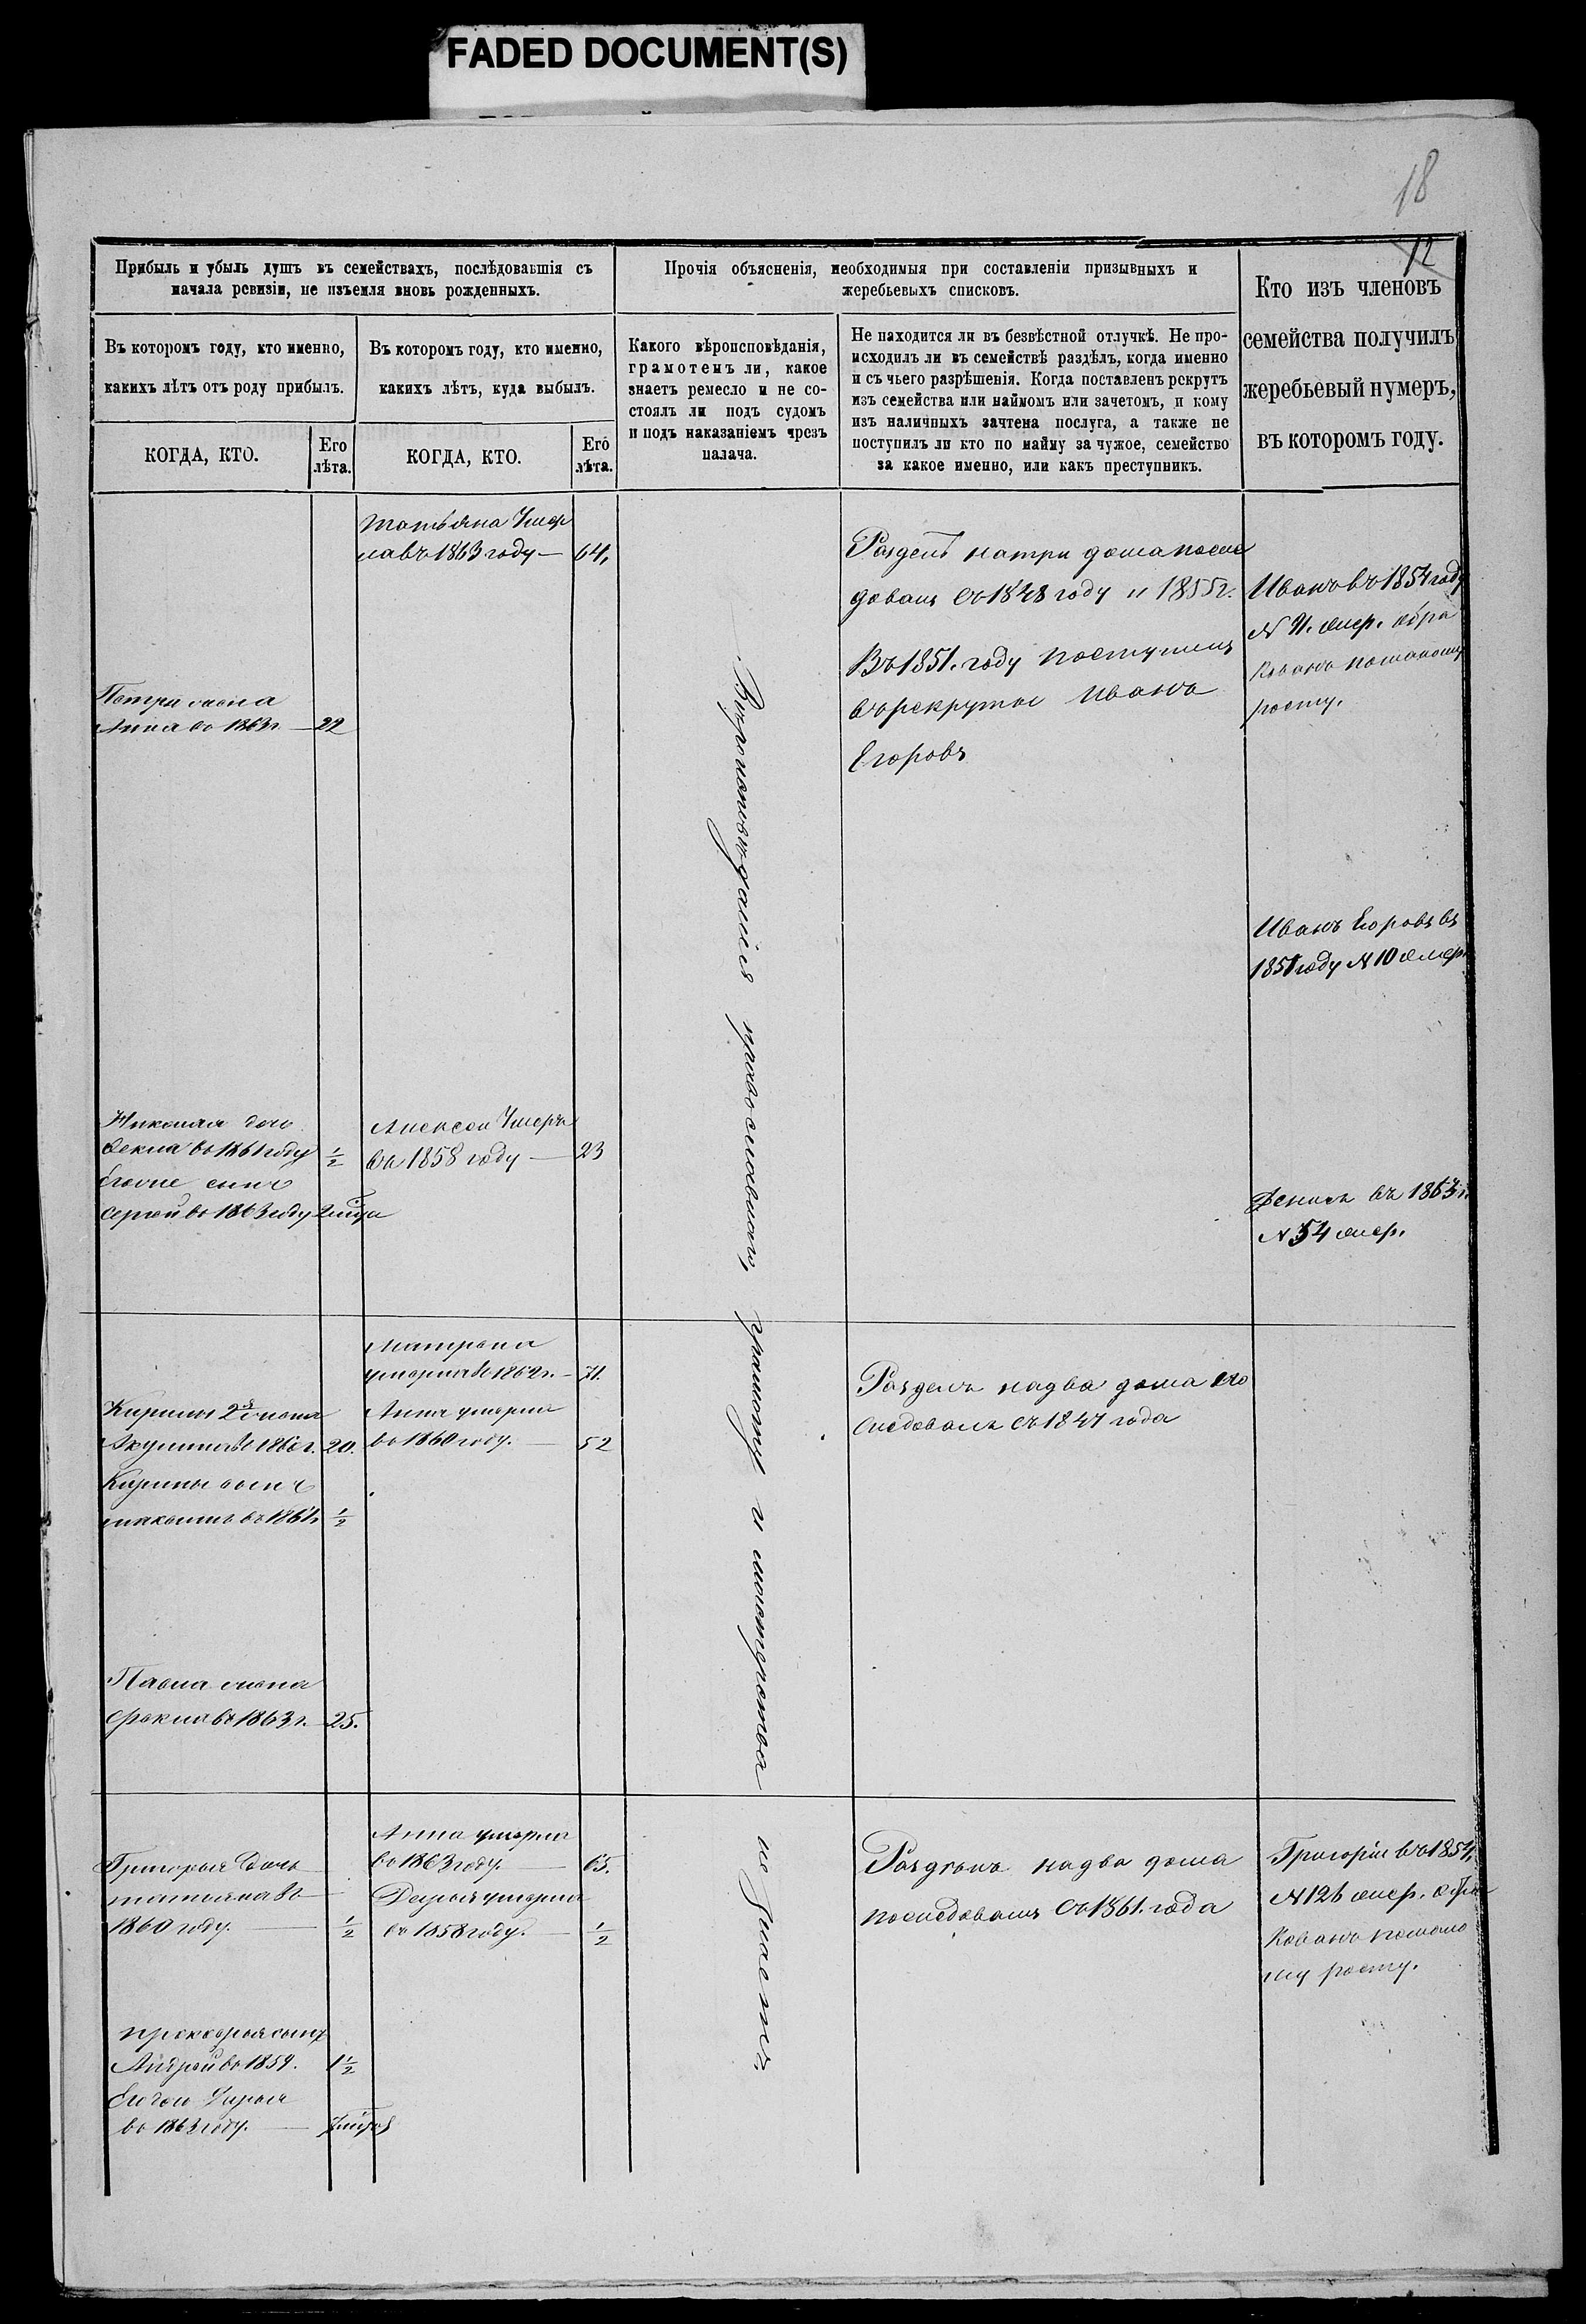 FADED DOCUMENT(S)
18
12
Прибыль и убыль душъ въ семействахъ, послѣдовавшія съ
начала ревизіи, не изъемля вновь рожденныхъ.
Въ которомъ году, кто именно,
какихъ лѣтъ отъ роду прибылъ.
КОГДА, КТО.
Его
лѣта.
Въ которомъ году, кто именно,
какихъ лѣтъ, куда выбылъ.
КОГДА, КТО.
Его
лѣта.
Прочія объясненія, необходимыя при составленіи призывныхъ и
жеребьевыхъ списковъ.
Какого вѣроисповѣданія,
грамотенъ ли, какое
знаетъ ремесло и не со-
стоялъ ли подъ судомъ
и подъ наказаніемъ чрезъ
палача.
Не находится ли въ безвѣстной отлучкѣ. Не про-
исходилъ ли въ семействѣ раздѣлъ, когда именно
и съ чьего разрѣшенія. Когда поставленъ рекрутъ
изъ семейства или наймомъ или зачетомъ, и кому
изъ наличныхъ зачтена послуга, а также не
поступилъ ли кто по найму за чужое, семейство
за какое именно, или какъ преступникъ.
Кто изъ членовъ
семейства получилъ
жеребьевый нумеръ,
въ которомъ году.
Татьяна Умер
ла въ 1863 году — 64,
Петра жена
Анна въ 1863 г. — 22
Николая дочь
Фекла въ 1861 году 1/2
Егоже сынъ
Сергей въ 1863 году
Алексей Умеръ
въ 1858 году — 23
Матрона
умерла въ 1862 г. — 71.
Анна умерла
въ 1860 году. — 52
Кирилы 2й жена
Акулина въ 186 г. 20.
Кирилы сынъ
въ 1861 г. 1/2
Павла жена
Фекла въ 1863 г. — 25.
Григорья дочь
татьяна въ
1860 году. — 1/2
Анна умерла
въ 1863 году. — 65.
Дарья умерла
въ 1858 году. — 1/2
прохорья сынъ
Андрей въ 1859. 1 1/2
Его дочь Дарья
въ 1863 году. —
Вероисповеданія православнаго, грамоту и мастерства не знаетъ
Разделъ на три дома после
довалъ въ 1848 году и 1855 г.
Въ 1851. году поступилъ
въ рекруты Иванъ
Егоровъ
Разделъ на два дома по
следовалъ съ 1847 года
Разделъ на два дома
последовалъ съ 1861. года
Иванъ въ 1854 году
жер. обра
кованъ помалому
росту.
Иванъ Егоровъ въ
1851 году N 10 жер.
Денисъ въ 1863 г.
N 54 жер.
Григорій въ 1854,
N 126 жер. обра
кованъ помало
му росту.